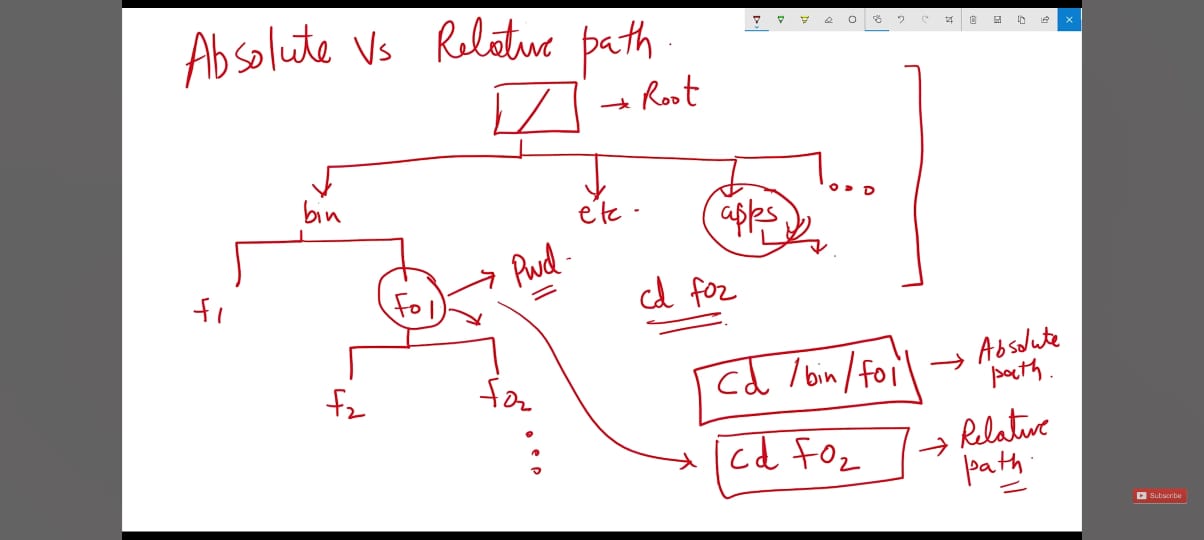 Absolute Vs Relative path.
/ → Root
bin
etc.
apps
...
f1
fo1
Pwd.
cd fo2
f2
fo2
cd /bin/fo1 → Absolute
path.
cd fo2 → Relative
path
Subscribe